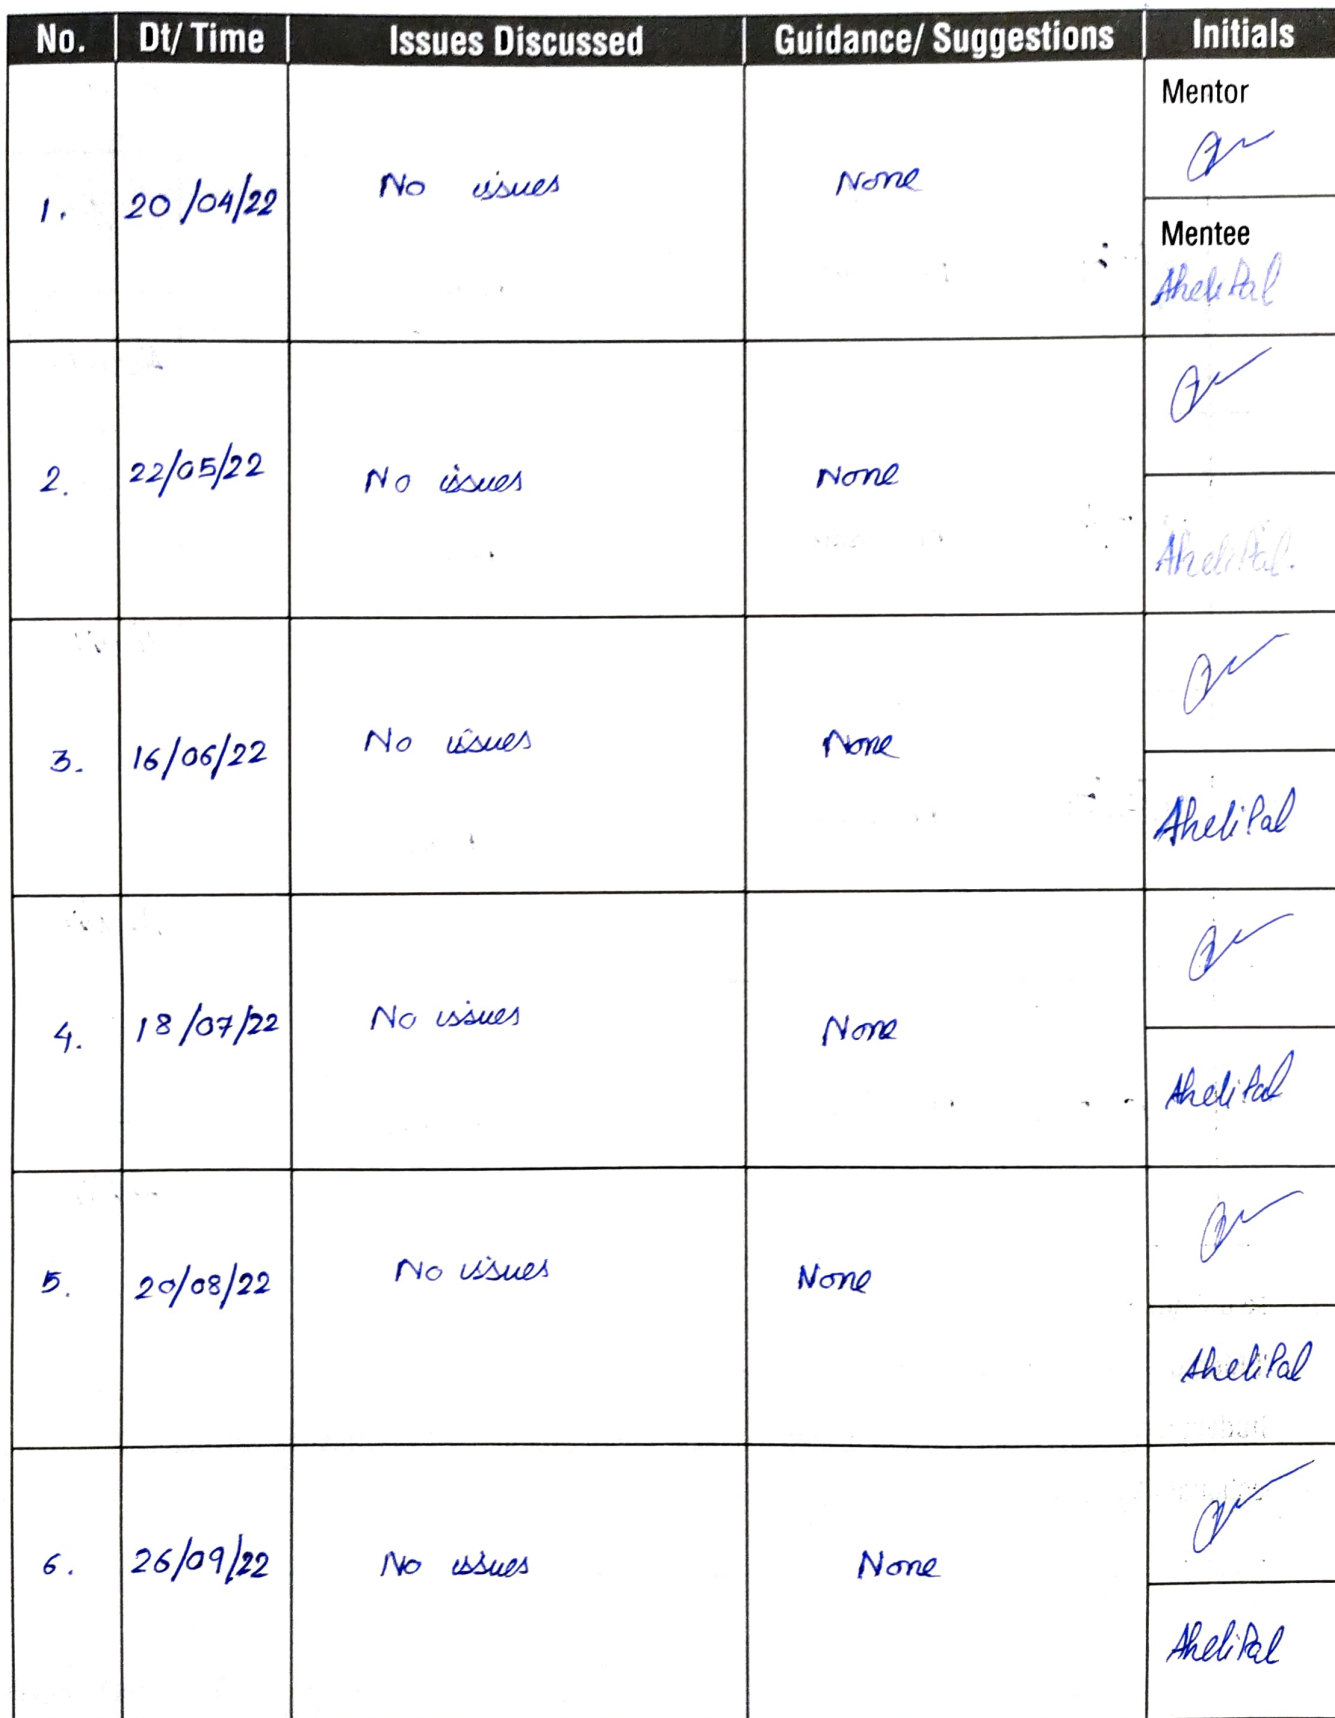 No. Dt/ Time Issues Discussed Guidance/ Suggestions Initials
Mentor
1. 20/04/22 No issues None
Mentee
Aheli Pal
2. 22/05/22 No issues None
Aheli Pal.
3. 16/06/22 No issues None
Aheli Pal
4. 18/07/22 No issues None
Aheli Pal
5. 20/08/22 No issues None
Aheli Pal
6. 26/09/22 No issues None
Aheli Pal